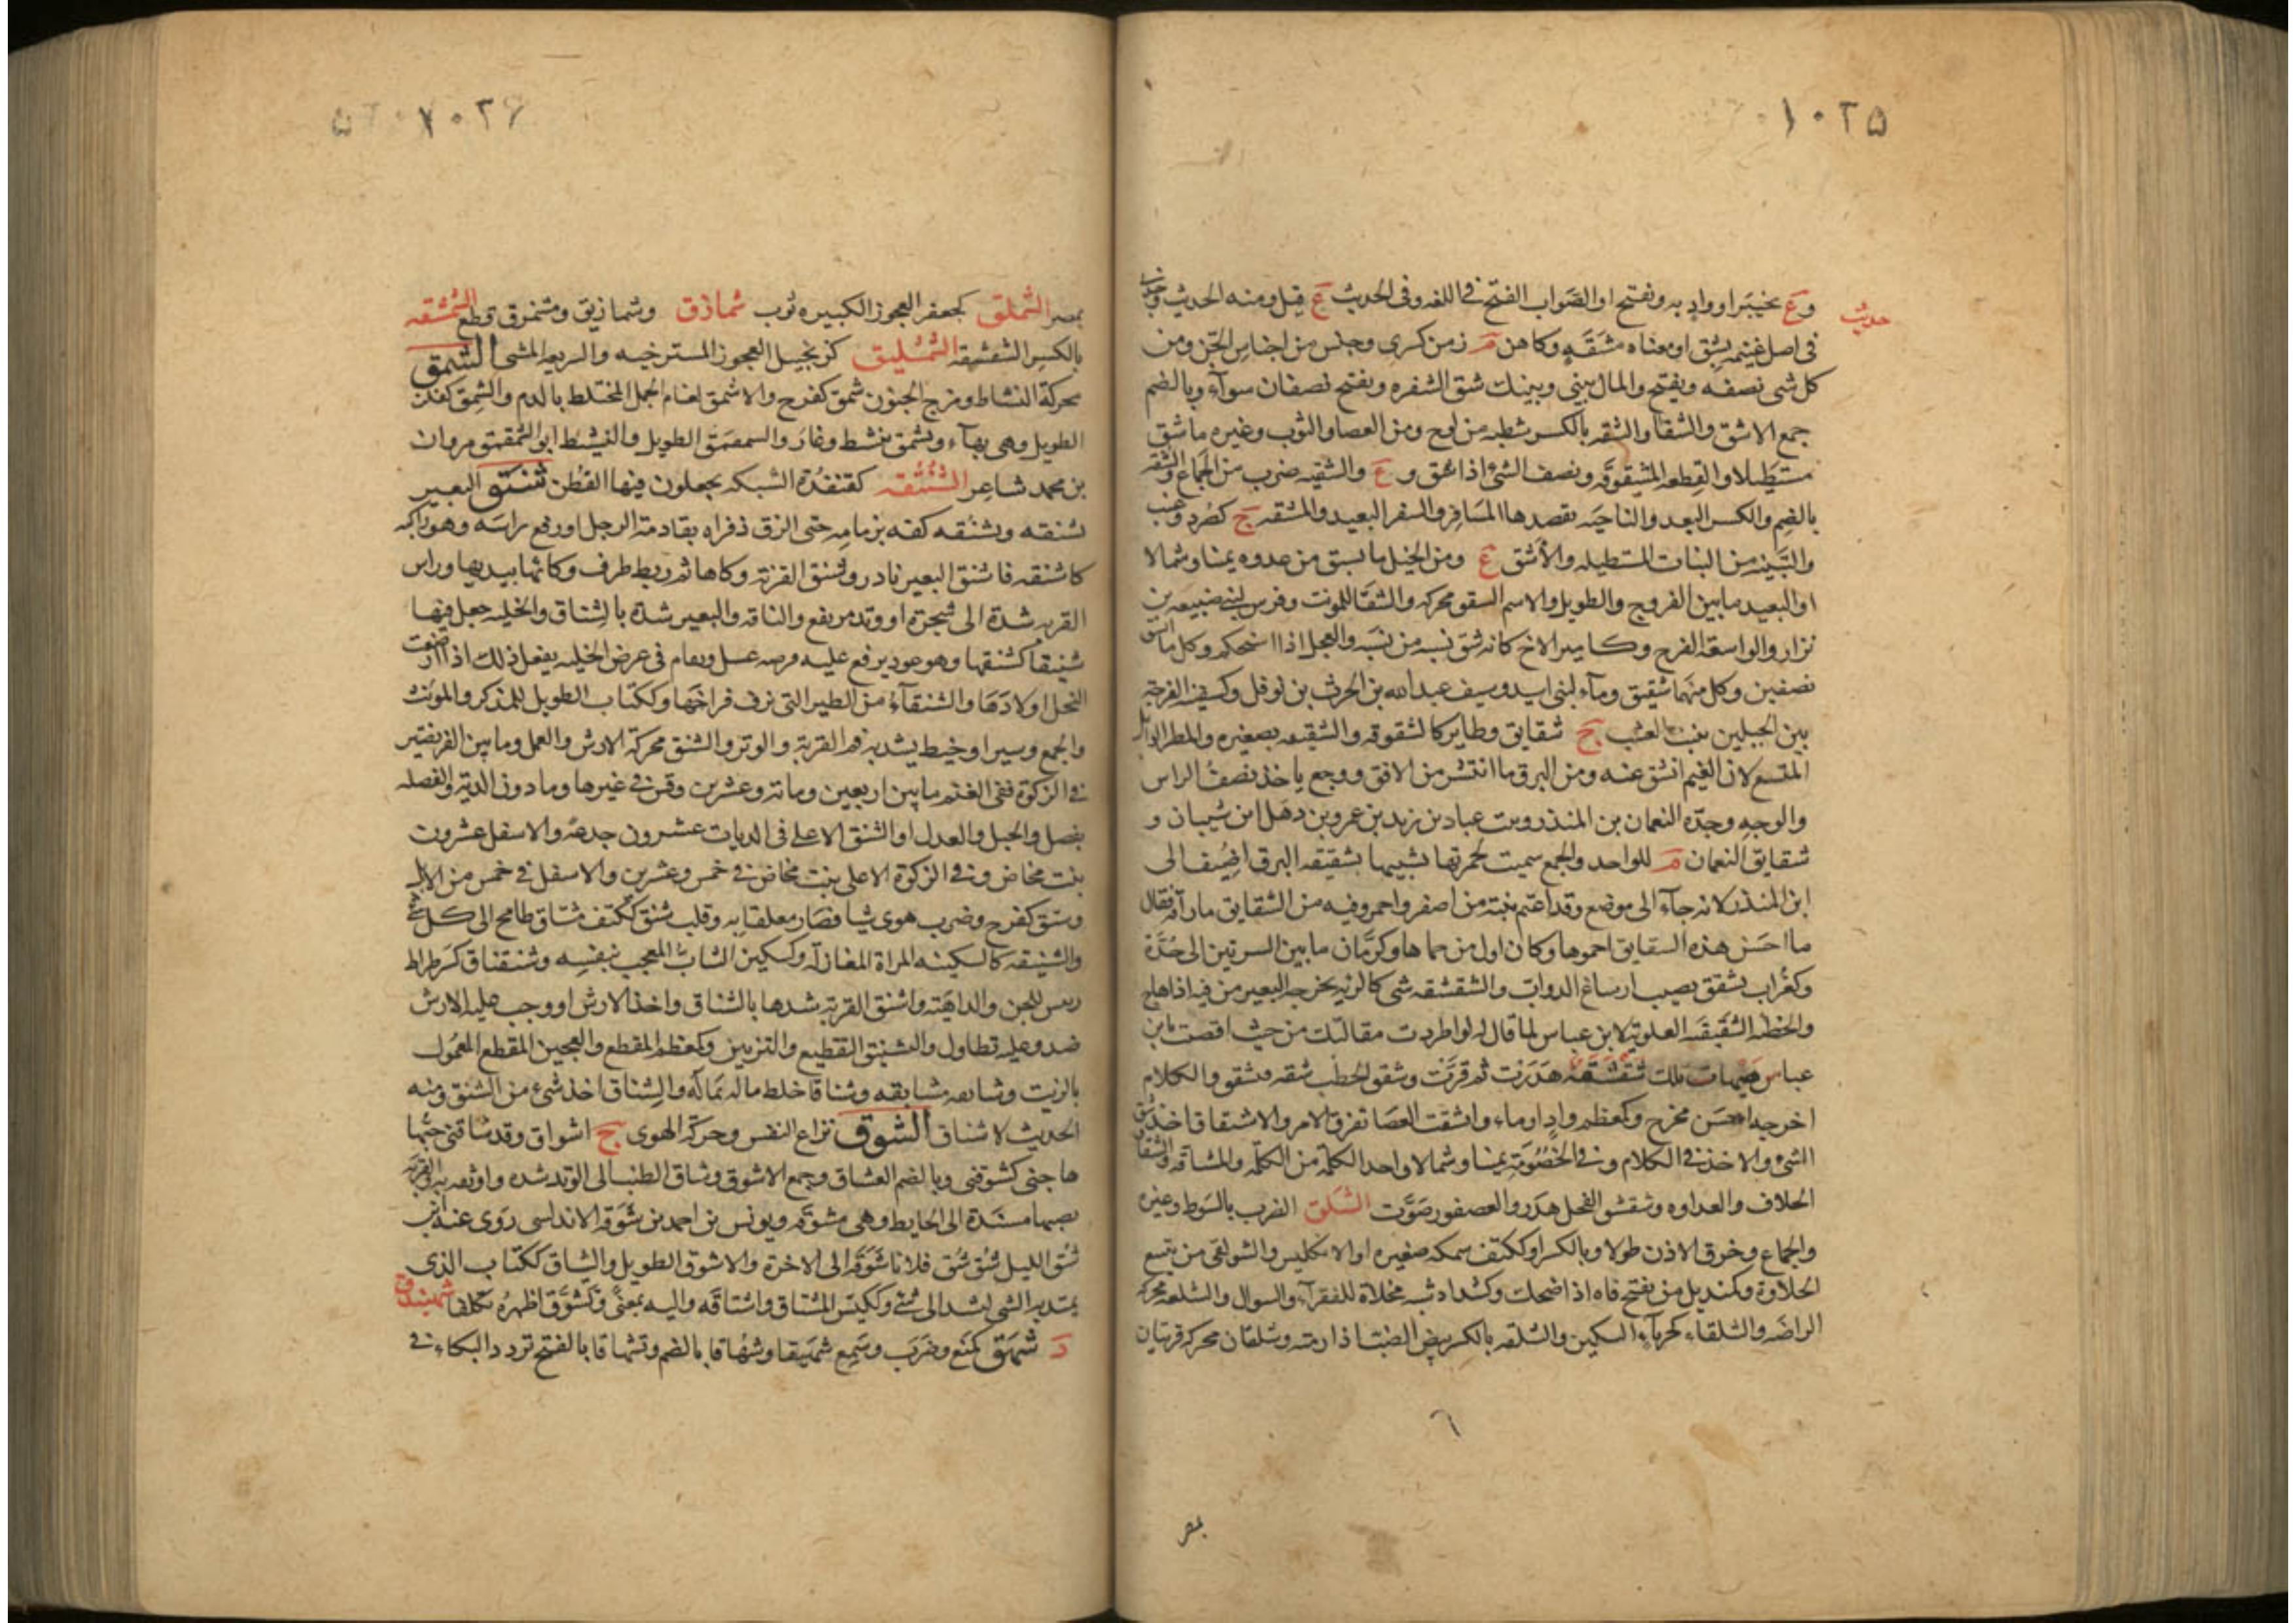 ١٠٢۵
وع بخيبر او واد به ويفتح او الصواب الفتح فى اللغه وفى الحديث ع قيل ومنه الحديث وجدنى
حديث
فى اهل غنيمه بشق او معناه مشقه وكاهن م زمن كسرى وجنس من اجناس الجن ومن
كل شى نصفه ويفتح والمال بينى وبينك شق الشعره ويفتح نصفان سوآء وبالضم
جمع الاشق والشقا والشقه بالكسر شظيه من لوح ومن العصا والثوب وغيره ما شق
مستطيلا والقطعه المشقوقه ونصف الشئ اذا شق و ع والشقيه ضرب من الجماع والشقه
بالضم والكسر البعد والناحيه يقصدها المسافر والسفر البعيد والمشقه ج كصرد وعنب
والاشق ع ومن الخيل ما يشتق من عدوه يمنا وشمالا
او البعيد ما بين الفروج والطويل والاسم الشقق محركه والشقا للمونث وفرس لبنى ضبيعه بن
نزار والواسعة الفرج وكامير الاخ كانه شق نسبه من نسبه والعجل اذا استحكم وكل ما انشق
نصفين وكل منهما شقيق ومآء لبنى اسيد وسيف عبد الله بن الحرث بن نوفل وكسفينه الفرجة
بين الجبلين تنبت العشب ج شقايق وطاير كالشقوقه والشقيقه بصغيره والمطر الوابل
المتسع لان الغيم انشق عنه ومن البرق ما انتشر من الافق ووجع ياخذ نصف الراس
والوجه وجدّه النعمان بن المنذر وبنت عباد بن زيد بن عمرو بن ذهل ابن شيبان و
شقايق النعمان م للواحد والجمع سميت لحمرتها تشبيها بشقيقه البرق اضيف الى
ابن المنذر لانه جآء الى موضع وقد اعتم نبته من اصفر واحمر وفيه من الشقايق ما رآقه فقال
ما احسن هذه الشقايق احموها وكان اول من حماها وكرمّان ما بين السرتين الى جُدّة
وكغراب تشقق يصيب ارساغ الدواب والشقشقه شى كالرئه يخرجه البعير من فيه اذا هاج
والخطبه الشقشقيه العلويه لابن عباس لما قال له لو اطردت مقالتك من حيث افضيت يا بن
عباس هيهات تلك شقشقه هدرت ثم قرّت وشقق الحطب شقه فتشقق والكلام
اخرجه احسن مخرج وكمعظم واد او ماء وانشقت العصا تفرق الامر والاشتقاق اخذ شق
الشئ والاخذ فى الكلام وفى الخصومة يمنا وشمالا واخذ الكلمة من الكلمه والمشاقه والشقاق
الخلاف والعداوه وشقشق الفحل هدر والعصفور صوّت الشلق الضرب بالسوط وغيره
والجماع وخرق الاذن طولا وبالكسر او ككتف سمكه صغيره او الانكليس والشولقى من يتبع
الحلاوة وكمنديل من يفتح فاه اذا ضحك وكشداد شبه مخلاة للفقرآء والسوال والشلقه محركه
الراضه والشلقاء كحربآء السكين والشلقه بالكسر بيض الضب اذا رمته وشلقان محركه قريتان
بمصر
١٠٢۶
بمصر الشملق كجعفر العجوز الكبيره ثوب شماذق وشماذيق ومشمرق قطع الشمشقه
بالكسر الشقشقه الشمشليق كزنجبيل العجوز المسترخيه والسريعه المشى الشمق
محركة النشاط ومرح الجنون شمق كفرح والاشمق لغام الجمل المختلط بالدم والشمق كفلز
الطويل وهى بهآء وتشمق نشط وغار والشمقمق الطويل والنشيط ابو الشمقمق مروان
بن محمد شاعر الشنتقه كقنفذة الشبكه يجعلون فيها القطن شنق البعير
يشنقه ويشنقه كفه بزمامه حتى الزق ذفراه بقادمة الرجل او رفع راسه وهو راكبه
كاشنقه فاشنق البعير نادر وشنق القربة وكاها ثم ربط طرف وكائها بيديها وراس
القربه شدة الى شجرة او وتد مرتفع والناقه والبعير شدة بالشناق والخليه جعل فيها
شنيقا كشنقها وهو عود يرفع عليه قرصه عسل ويقام فى عرض الخليه يفعل ذلك اذا ارضعت
النحل اولادها والشنقآء من الطير التى تزق فراخها وككتاب الطويل للمذكر والمونث
والجمع وسير او خيط يشد به فم القربة والوتر والشنق محركة الارش والعمل وما بين الفريضتين
فى الزكوة ففى الغنم ما بين اربعين ومائة وعشرين وقس فى غيرها وما دون الدية والفضله
يفضل والحبل والعدل او الشنق الاعلى فى الديات عشرون جذعه والاسفل عشرون
بنت مخاض وفى الزكوة الاعلى بنت مخاض فى خمس وعشرين والاسفل فى خمس من الابل
وشنق كفرح وضرب هوى شيا فصار معلقا به وقلب شنق ككتف مشتاق طامح الى كل شئ
والشنيقه كالسكينه المراة المغازلة وكسكين الشاب المعجب بنفسه وشنقناق كسرطراط
رئيس للجن والداهية واشنق القربة شدها بالشناق واخذ الارش او وجب عليه الارش
ضد وعليه تطاول والتشنيق التقطيع والتزيين وكمعظم المقطع والعجين المقطع المعمول
بالزيت وشانقه مشانقه وشناقا خلط ماله بماله والشناق اخذ شئ من الشنق ومنه
الحديث لا شناق الشوق نزاع النفس وحركة الهوى ج اشواق وقد شاقنى حبّها
هاجنى كشوقنى وبالضم العشاق وجمع الاشوق وشاق الطنب الى الوتد شده واوثقه به والقربة
نصبها مسندة الى الحايط وهى مشوقه ويونس بن احمد بن شوقه الاندلسى روى عنه ابن
شق الليل شق شق فلانا شوقه الى الاخرة والاشوق الطويل والشياق ككتاب الذى
يمتد به الشى لشد الى شئ وككيّس المشتاق واشتاقه واليه بمعنى وتشوّق اظهره تكلفا شميشدق
د شهق كمنع وضرب وسمع شهيقا وشهاقا بالضم وتشهاقا بالفتح تردد البكاء فى